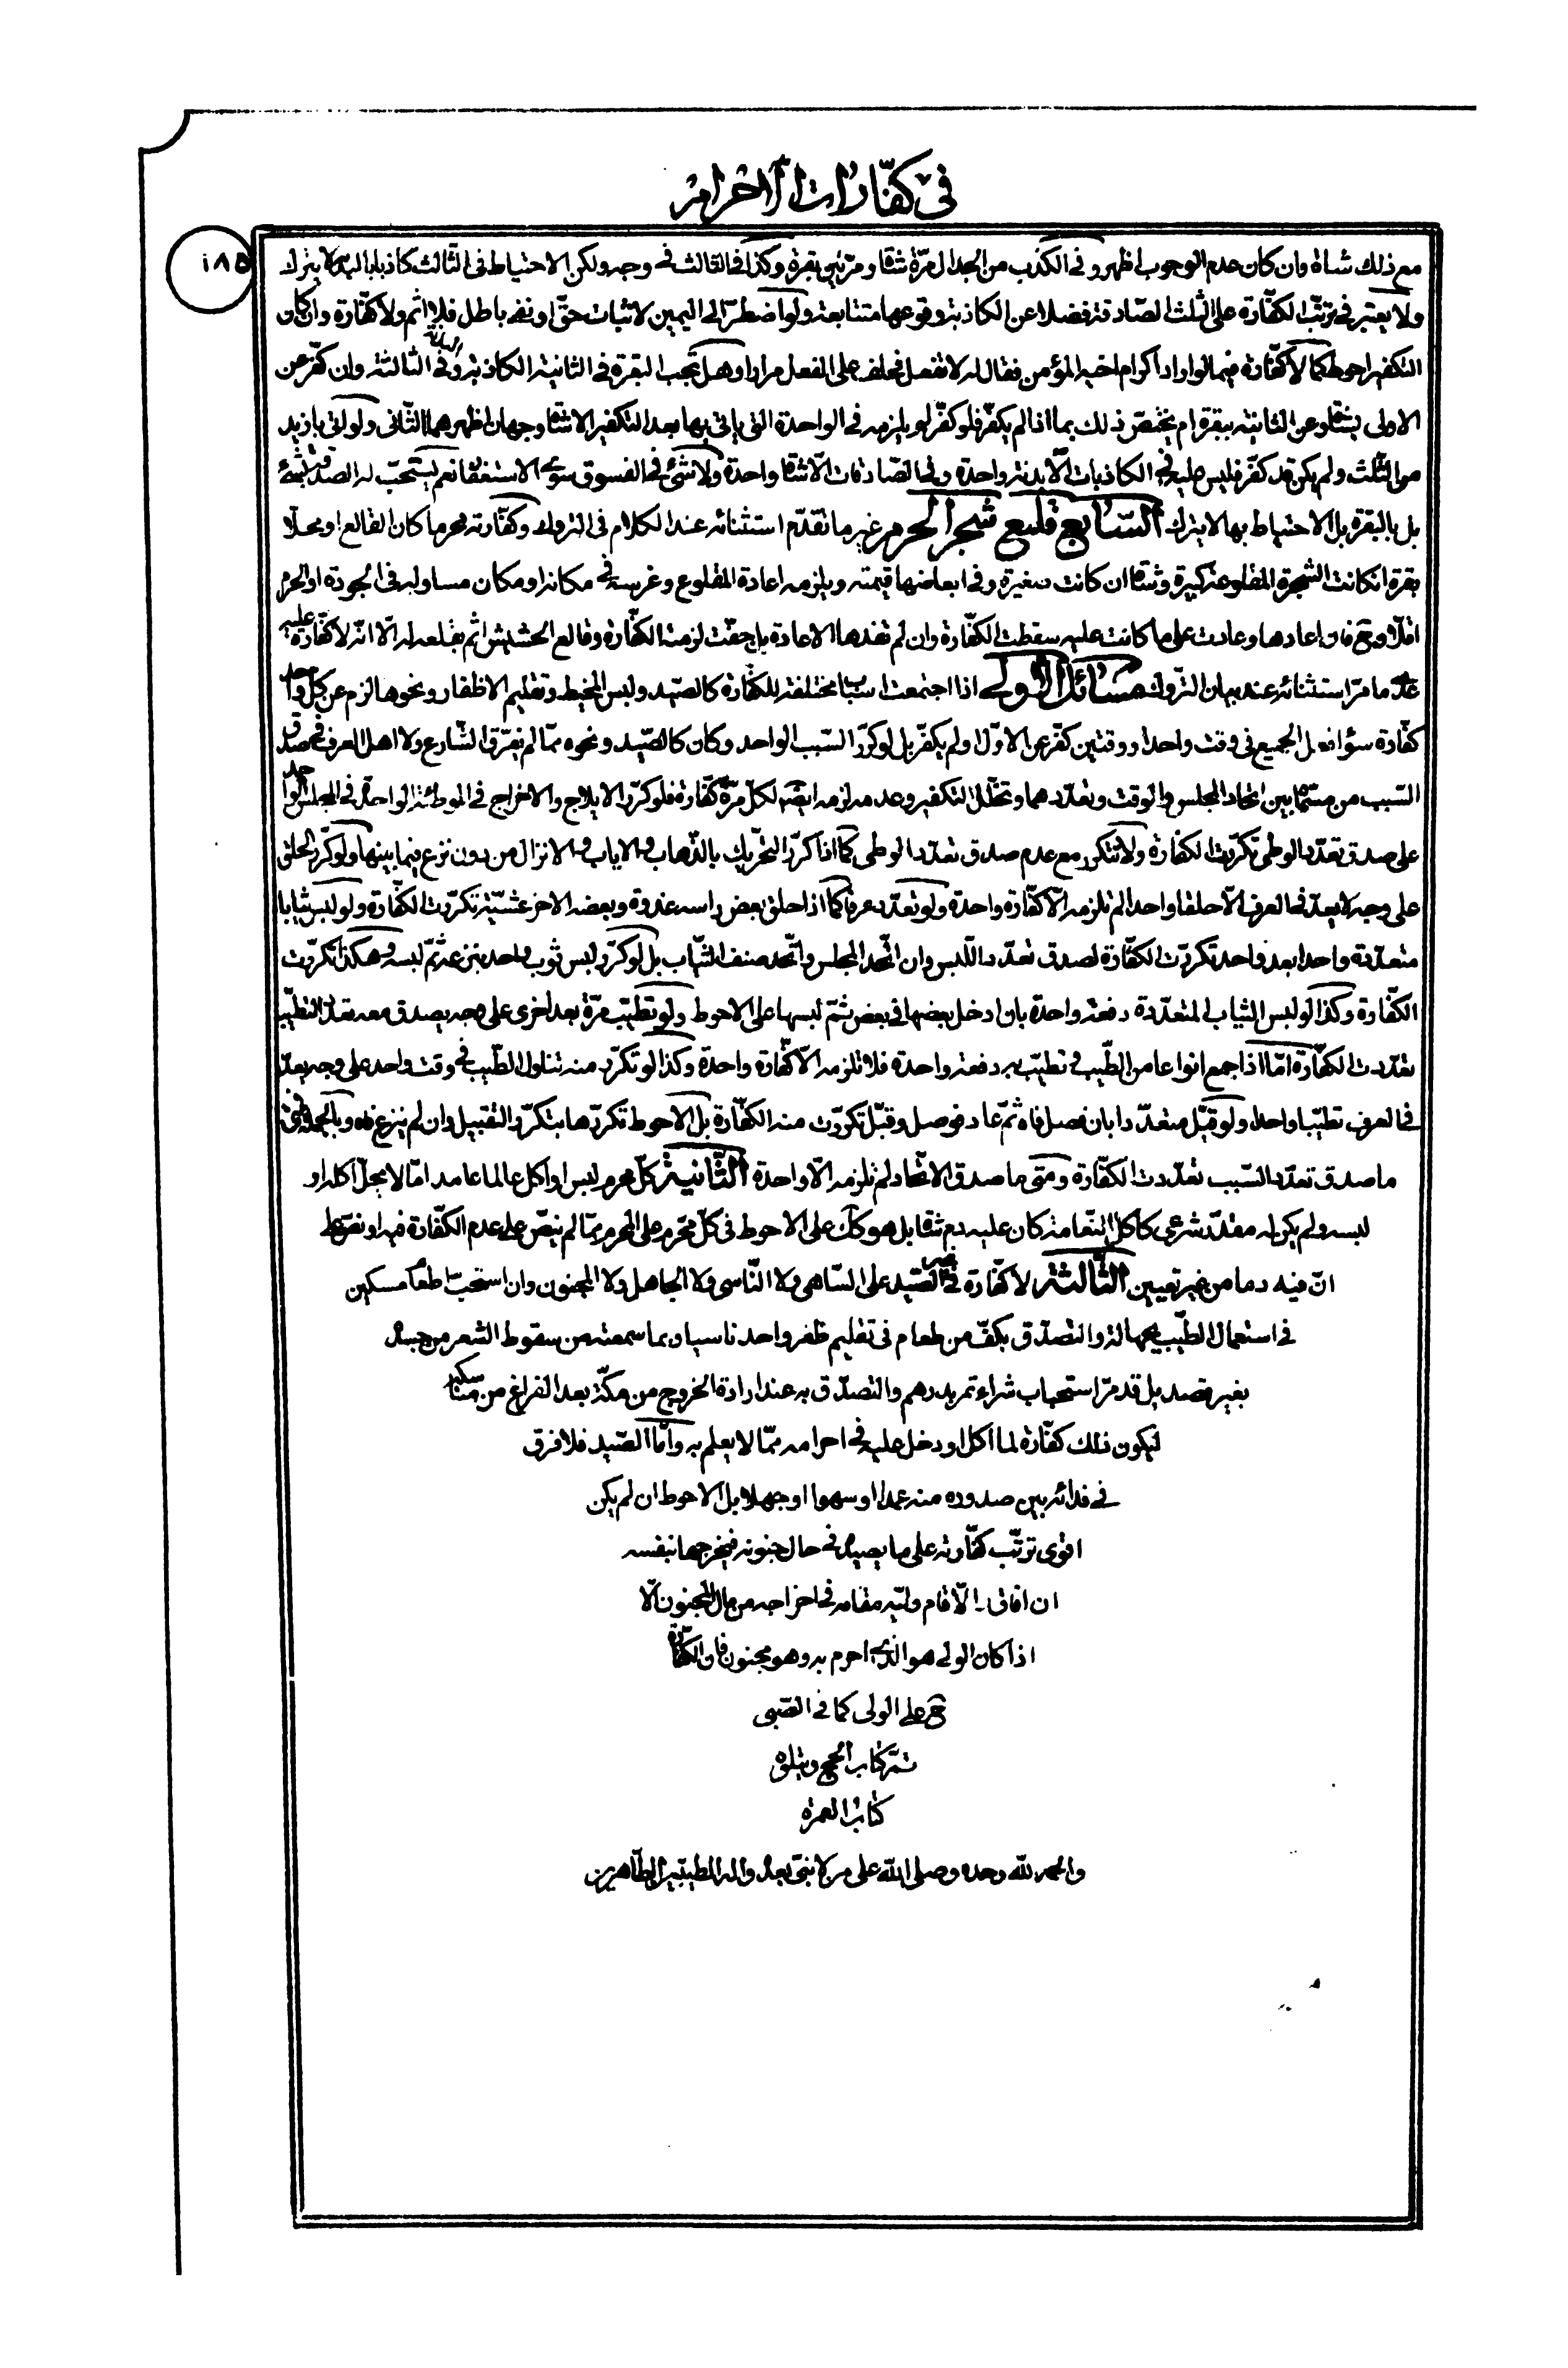 في كفّارات الاحرام
١٨٥
مع ذلك شاة وان كان عدم الوجوب اظهر وفى الكذب من الجدال مرّة شاة ومرّتين بقرة وكذا فى الثالث فى وجه ولكن الاحتياط فى الثالث كاذبا بالبدنة لا يترك
ولا يعتبر فى ترتّب الكفّارة على الثلث الصّادقة فضلا عن الكاذبة وقوعها متتابعة ولو اضطرّ الى اليمين لاثبات حقّ او نفى باطل فلا اثم ولا كفّارة وان كان
التكفير احوط كما لا كفّارة فيما لو اراد اكرام اخيه المؤمن فقال له لا تفعل فحلف على الفعل مرارا وهل تجب البقرة فى الثانية الكاذبة والبدنة فى الثالثة وان كفّر عن
الاولى بشاة وعن الثانية ببقرة ام يختصّ ذلك بما اذا لم يكفّر فلو كفّر لم يلزمه فى الواحدة التى ياتى بها بعد التكفير الا شاة وجهان اظهرهما الثّانى ولو اتى بازيد
من الثّلث ولم يكن قد كفّر فليس عليه فى الكاذبات الّا بدنة واحدة وفى الصّادقات الّا شاة واحدة ولا شئ فى الفسوق سوى الاستغفار نعم يستحبّ له الصدقة بشئ
بل بالبقرة بل الاحتياط بها لا يترك السّابع قلع شجر الحرم غير ما تقدّم استثنائه عند الكلام فى التروك وكفّارته محرما كان القالع او محلّا
بقرة ان كانت الشجرة المقلوعة كبيرة وشاة ان كانت صغيرة وفى ابعاضها قيمته ويلزمه اعادة المقلوع وغرسه فى مكانه او مكان مساو له فى الجودة او الحرم
اقلّا وح فان اعادها وعادت على ما كانت عليه سقطت الكفّارة وان لم تفدها الاعادة بل جفّت لزمته الكفّارة وقالع الحشيش اثم بقلعه له الّا انّه لا كفّارة عليه
عدا ما مرّ استثنائه عند بيان التروك مسائل الاولى اذا اجتمعت اسباب مختلفة للكفّارة كالصّيد ولبس المخيط وتقليم الاظفار ونحوها لزم عن كلّ واحد
كفّارة سواء فعل الجميع فى وقت واحد او وقتين كفّر عن الاوّل او لم يكفّر بل لو كرّر السّبب الواحد وكان كالصّيد ونحوه ممّا لم يفرّق الشّارع ولا اهل العرف فى صدق
السّبب من مسمّاه بين اتحاد المجلس والوقت وتعدّدهما وتخلّل التكفير وعدمه لزمه ايضا لكلّ مرّة كفّارة فلو كرّر الايلاج والاخراج فى الموطئة الواحدة فى المجلس الواحد
على صدق تعدّد الوطى تكرّرت الكفّارة ولا تتكرر مع عدم صدق تعدّد الوطى كما اذا كرّر التحريك بالذّهاب والاياب والانزال من دون نزع فيما بينها ولو كرّر الحلق
على وجه لا يعدّ فى العرف الّا حلقا واحدا لم تلزمه الّا كفّارة واحدة ولو تعدّد عرفا كما اذا حلق بعض راسه غدوة وبعضه الاخر عشيّة تكرّرت الكفّارة ولو لبس ثيابا
متعدّدة واحدا بعد واحد تكرّرت الكفّارة لصدق تعدّد اللّبس وان اتّحد المجلس واتّحد صنف الثياب بل لو كرّر لبس ثوب واحد بنزعه ثمّ لبسه وهكذا تكرّرت
الكفّارة وكذا لو لبس الثياب المتعدّدة دفعة واحدة بان ادخل بعضها فى بعض ثمّ لبسها على الاحوط ولو تطيّب مرّة بعد اخرى على وجه يصدق معه تعدّد التطيّب
تعدّدت الكفّارة امّا اذا جمع انواعا من الطّيب فتطيّب به دفعة واحدة فلا تلزمه الّا كفّارة واحدة وكذا لو تكرّر منه تناول الطّيب فى وقت واحد على وجه يعدّ
فى العرف تطيّبا واحدا ولو قبّل متعدّدا بان فصل فاه ثمّ عاد فوصل وقبّل تكرّرت منه الكفّارة بل الاحوط تكرّرها بتكرّر التقبيل وان لم ينزع فاه وبالجملة فمتى
ما صدق تعدّد السّبب تعدّدت الكفّارة ومتى ما صدق الاتّحاد لم تلزمه الّا واحدة الثّانية كلّ محرم لبس او اكل عالما عامدا مّا لا يحلّ اكله او
لبسه ولم يكن له مقدّر شرعى كاكل النّعامة كان عليه دم شاة بل هو كك على الاحوط فى كلّ محرّم على المحرم ممّا لم ينصّ على عدم الكفّارة فيه او نصّ على
انّ فيه دما من غير تعيين الثّالثة لا كفّارة فى غير الصّيد على السّاهى ولا النّاسى ولا الجاهل ولا المجنون وان استحبّ اطعام مسكين
فى استعمال الطّيب بجهالة والتصدّق بكفّ من طعام فى تقليم ظفر واحد ناسيا وبما سمعته من سقوط الشعر من جسده
بغير قصد بل قد مرّ استحباب شراء تمر بدرهم والتصدّق به عند ارادة الخروج من مكّة بعد الفراغ من مناسكه
ليكون ذلك كفّارة لما اكل او دخل عليه فى احرامه ممّا لا يعلم به وامّا الصّيد فلا فرق
فى فدائه بين صدوره منه عمدا او سهوا او جهلا بل الاحوط ان لم يكن
اقوى ترتّب كفّارته على ما يصيده فى حال جنونه فيخرجها بنفسه
ان افاق والّا قام وليّه مقامه فى اخراجه من مال المجنون الّا
اذا كان الولى هو الذى احرم به وهو مجنون فان الكفّارة
ح على الولى كما فى الصّبى
تمّ كتاب الحج ويتلوه
كتاب العمرة
والحمد لله وحده وصلى الله على من لا نبىّ بعده واله الطيّبين الطّاهرين